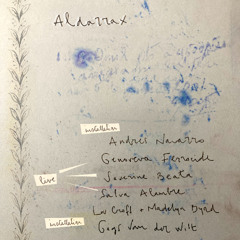 Aldarrax
installation
Andrés Navarro
Genoveva Ferreide
live
Severine Beata
Salva Alambre
Lor Croft + Madelyn Byrd
installation
Gogs Van der Wilt